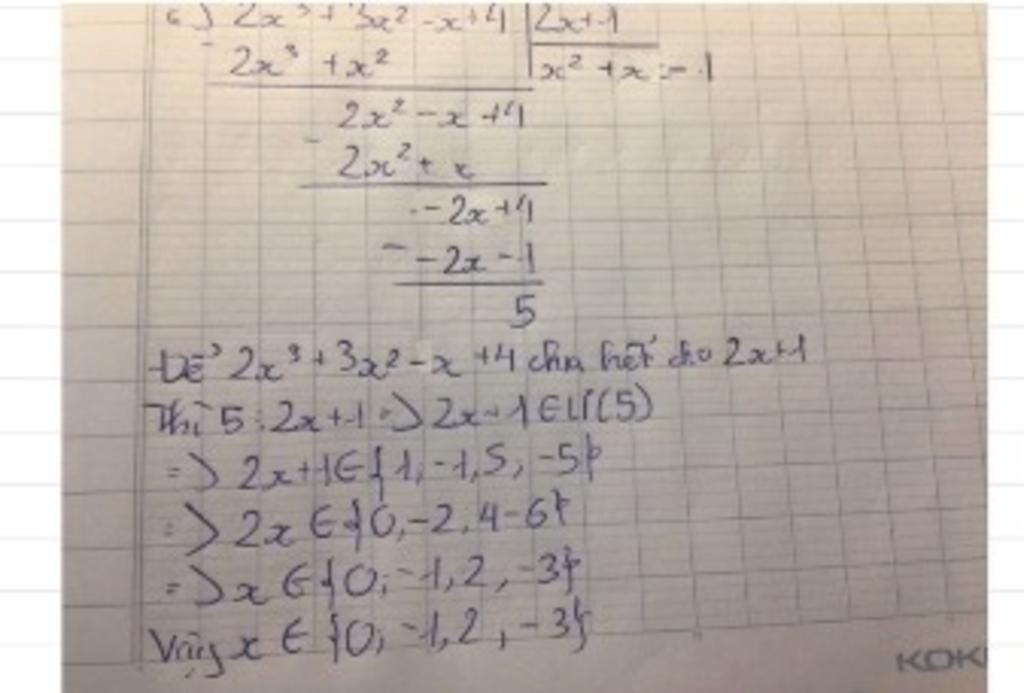 c) 2x³ + 3x² - x + 4 | 2x + 1
- 2x³ + x² | x² + x - 1
2x² - x + 4
- 2x² + x
- 2x + 4
- - 2x - 1
5
Để 2x³ + 3x² - x + 4 chia hết cho 2x + 1
Thì 5 ⋮ 2x + 1 => 2x + 1 ∈ Ư(5)
=> 2x + 1 ∈ {1, -1, 5, -5}
=> 2x ∈ {0, -2, 4 -6}
=> x ∈ {0; -1, 2, -3}
Vậy x ∈ {0; -1, 2, -3}